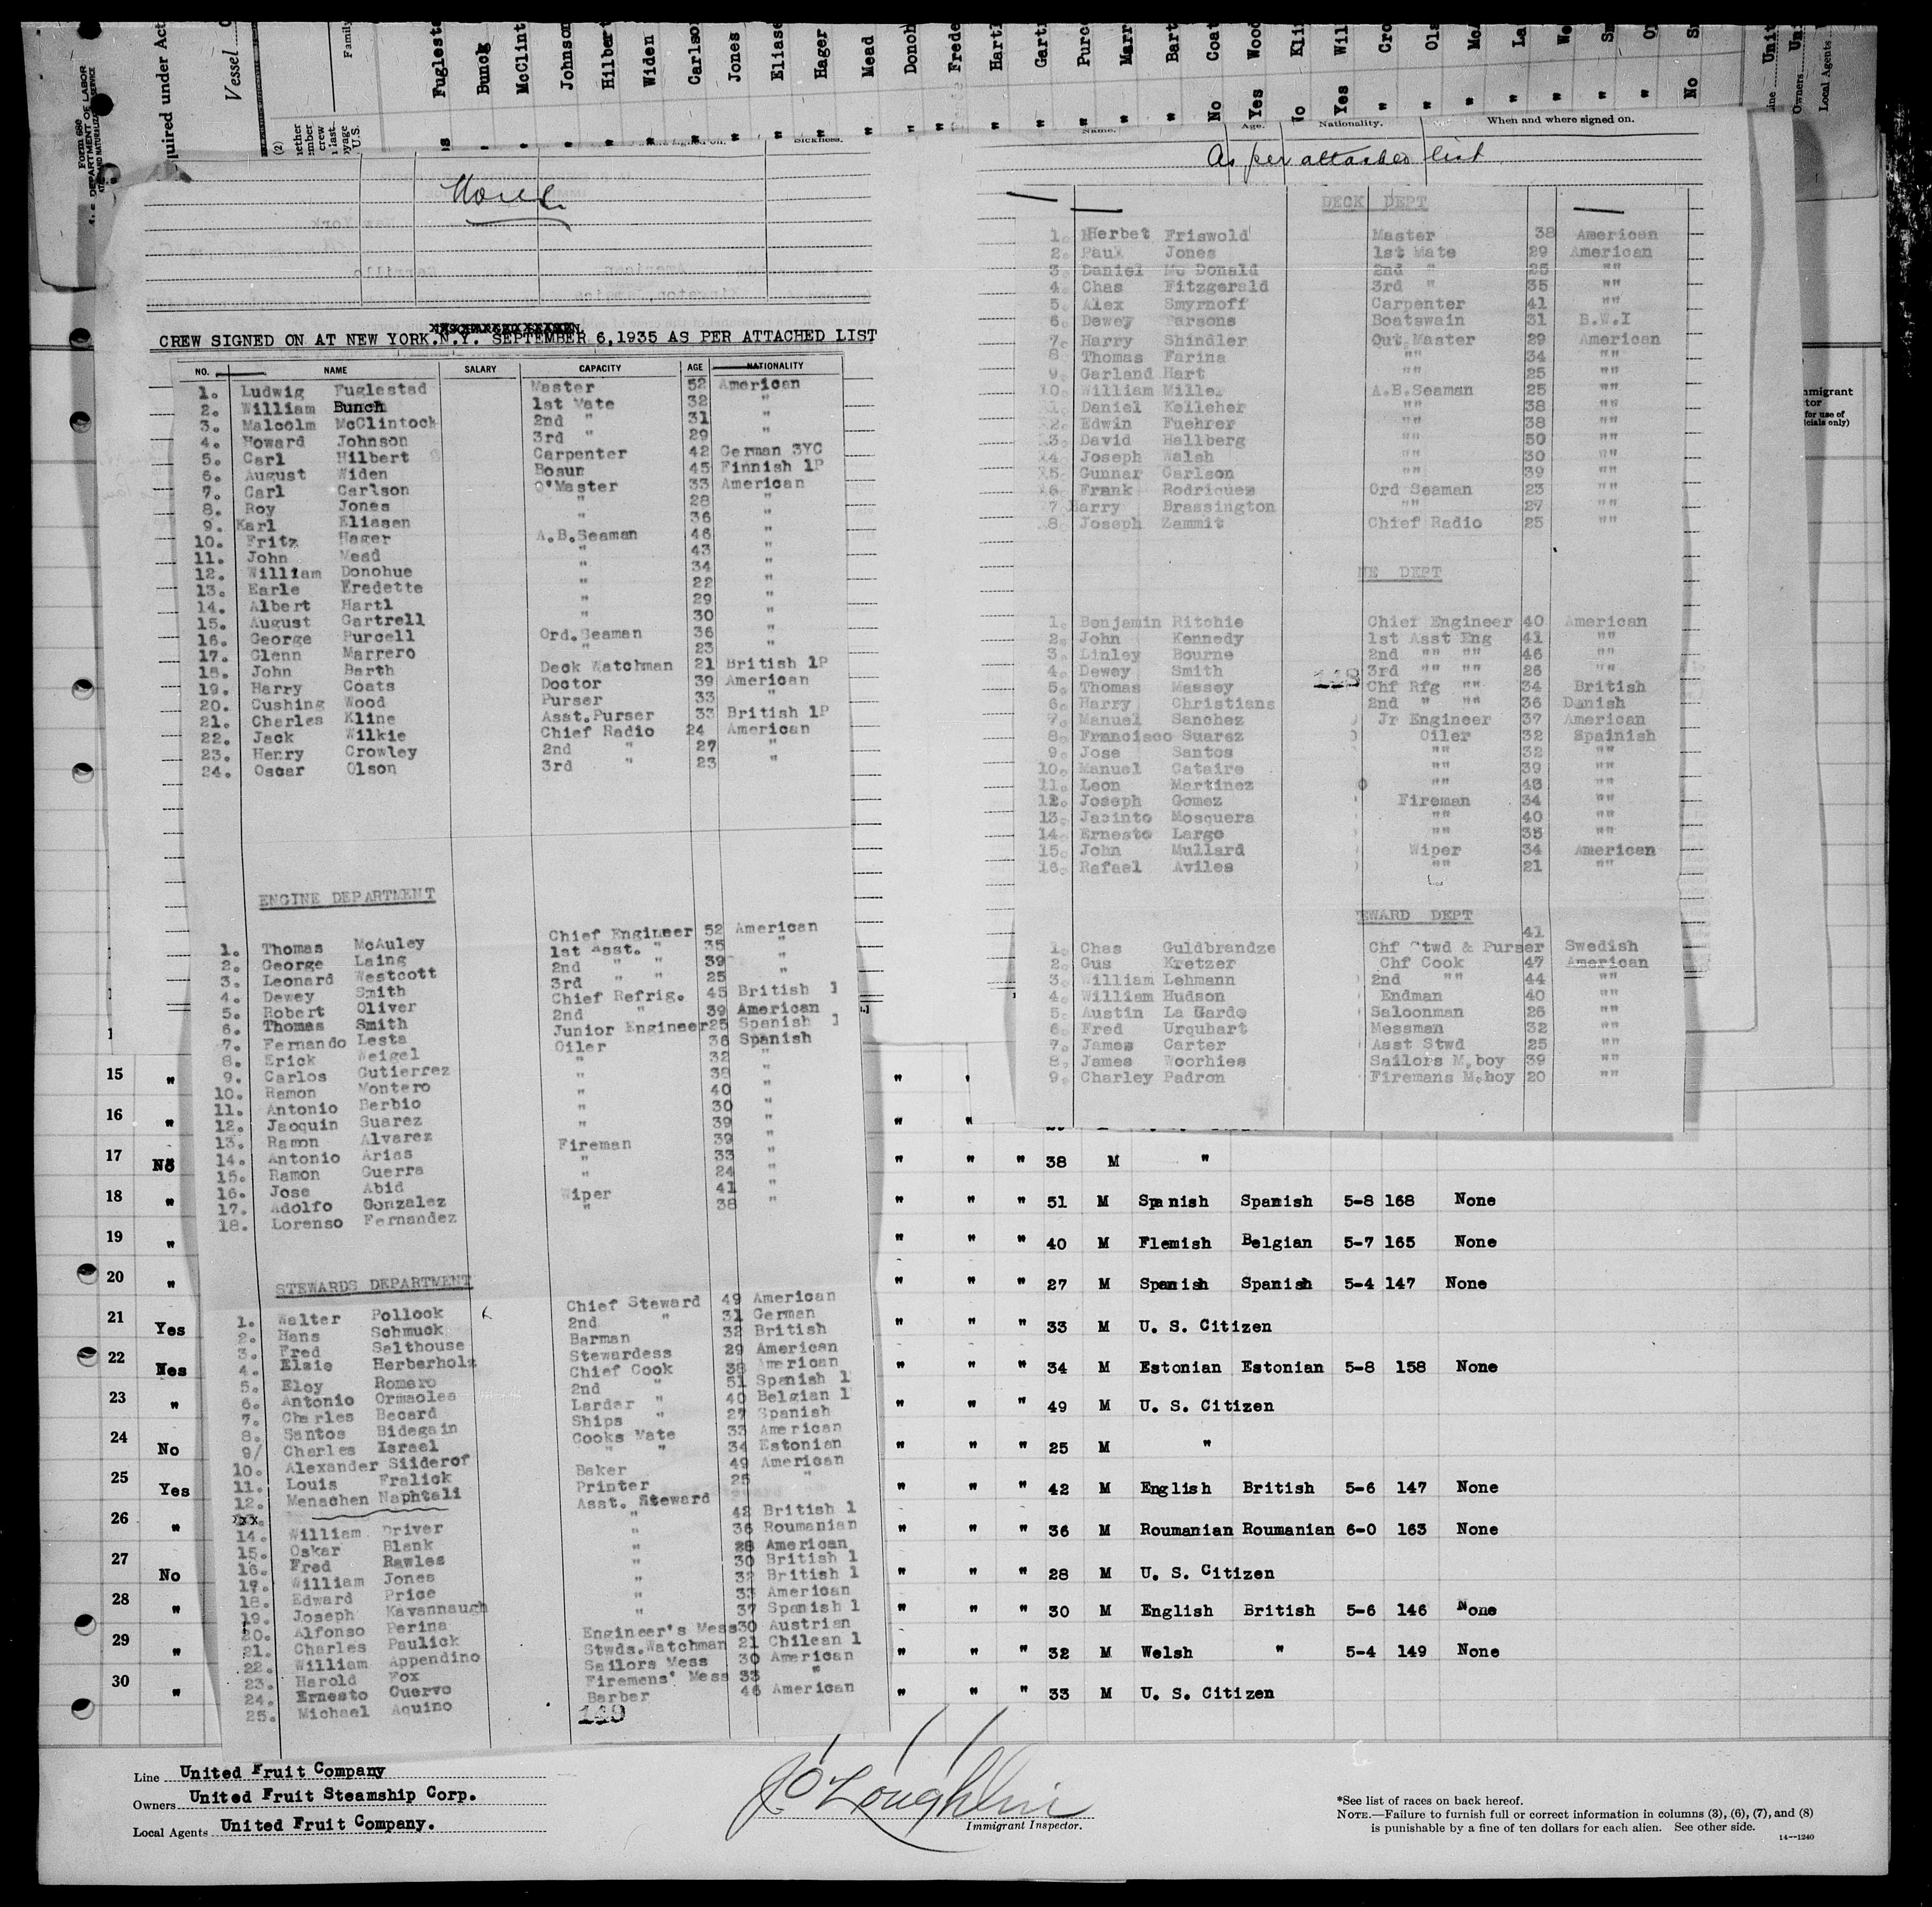 Form 680
DEPARTMENT OF LABOR
quired under Act
Vessel
(2)
Family
Fuglest
Bunch
McClint
Johnson
Hilbert
Widen
Carlso
Jones
Eliase
Hager
Mead
Donoh
Frede
Hartl
Gart
Purc
Marr
Bart
No Coat
Yes Wood
No Kli
Yes Wil
" Cro
" Ols
" Mc
" La
" We
"
"
No
Line Unit
Owners Un
Local Agents
Sickness.
Name. Age. Nationality. When and where signed on.
None
As per attached list
CREW SIGNED ON AT NEW YORK.N.Y. SEPTEMBER 6,1935 AS PER ATTACHED LIST
NO. NAME SALARY CAPACITY AGE NATIONALITY
1. Ludwig Fuglestad Master 52 American
2. William Bunch 1st Mate 32 "
3. Malcolm McClintock 2nd " 31 "
4. Howard Johnson 3rd " 29 "
5. Carl Hilbert Carpenter 42 German 3YC
6. August Widen Bosun 45 Finnish 1P
7. Carl Carlson Q'Master 33 American
8. Roy Jones " 28 "
9. Karl Eliasen " 36 "
10. Fritz Hager A.B.Seaman 46 "
11. John Mead " 43 "
12. William Donohue " 34 "
13. Earle Fredette " 22 "
14. Albert Hartl " 29 "
15. August Gartrell " 30 "
16. George Purcell Ord.Seaman 36 "
17. Glenn Marrero " 23 "
18. John Barth Deck Watchman 21 British 1P
19. Harry Coats Doctor 39 American
20. Cushing Wood Purser 33 "
21. Charles Kline Asst.Purser 33 British 1P
22. Jack Wilkie Chief Radio 24 American
23. Henry Crowley 2nd " 27 "
24. Oscar Olson 3rd " 23 "
ENGINE DEPARTMENT
1. Thomas McAuley Chief Engineer 52 American
2. George Laing 1st Asst. " 35 "
3. Leonard Westcott 2nd " " 39 "
4. Dewey Smith 3rd " " 25 "
5. Robert Oliver Chief Refrig. 45 British 1
6. Thomas Smith 2nd " 39 American
7. Fernando Lesta Junior Engineer 25 Spanish 1
8. Erick Weigel Oiler 36 Spanish
9. Carlos Gutierrez " 32 "
10. Ramon Montero " 38 "
11. Antonio Berbio " 40 "
12. Jaoquin Suarez " 30 "
13. Ramon Alvarez " 39 "
14. Antonio Arias Fireman 39 "
15. Ramon Guerra " 33 "
16. Jose Abid " 24 "
17. Adolfo Gonzalez Wiper 41 "
18. Lorenso Fernandez " 38 "
STEWARDS DEPARTMENT
1. Walter Pollock Chief Steward 49 American
2. Hans Schmuck 2nd " 31 German
3. Fred Salthouse Barman 32 British
4. Elsie Herberholz Stewardess 29 American
5. Eloy Romero Chief Cook 38 American
6. Antonio Ormaoles 2nd " 51 Spanish 1
7. Charles Becard Larder " 40 Belgian 1
8. Santos Bidegain Ships " 27 Spanish
9/ Charles Israel Cooks Mate 33 American
10. Alexander Siiderof " " 34 Estonian
11. Louis Fralick Baker 49 American
12. Menachen Naphtali Printer 25 "
Asst. Steward
14. William Driver " 42 British 1
15. Oskar Blank " 36 Roumanian
16. Fred Rawles " 28 American
17. William Jones " 30 British 1
18. Edward Price " 32 British 1
19. Joseph Kavannaugh " 33 American
20. Alfonso Perina " 37 Spanish 1
21. Charles Paulick Engineer's Mess 30 Austrian
22. William Appendino Stwds.Watchman 21 Chilean 1
23. Harold Fox Sailors Mess 30 American
24. Ernesto Cuervo Firemens' Mess 33 "
25. Michael Aquino Barber 46 American
149
DECK DEPT
1. Herbet Friswold Master 38 American
2. Paul Jones 1st Mate 29 American
3. Daniel Mc Donald 2nd " 25 ""
4. Chas Fitzgerald 3rd " 35 ""
5. Alex Smyrnoff Carpenter 41 ""
6. Dewey Parsons Boatswain 31 B.W.I
7. Harry Shindler Qut.Master 29 American
8. Thomas Farina "" 34 ""
9. Garland Hart "" 25 ""
10. William Miller A.B.Seaman 25 ""
11. Daniel Kelleher "" 38 ""
12. Edwin Fuehrer "" 38 ""
13. David Hallberg "" 50 ""
14. Joseph Walsh "" 30 ""
15. Gunnar Carlson "" 39 ""
16. Frank Rodriquez Ord Seaman 23 ""
7 Harry Brassington "" 27 ""
18. Joseph Zammit Chief Radio 25 ""
NE DEPT
1. Benjamin Ritchie Chief Engineer 40 American
2. John Kennedy 1st Asst Eng 41 ""
3. Linley Bourne 2nd "" "" 46 ""
4. Dewey Smith 148 3rd "" "" 26 ""
5. Thomas Massey Chf Rfg "" 34 British
6. Harry Christians 2nd " "" 36 Danish
7. Manuel Sanchez Jr Engineer 37 American
8. Francisco Suarez Oiler 32 Spainish
9. Jose Santos "" 32 ""
10. Manuel Cataire "" 39 ""
11. Leon Martinez "" 43 ""
12. Joseph Gomez Fireman 34 ""
13. Jacinto Mosquera "" 40 ""
14. Ernesto Largo "" 35 ""
15. John Mullard Wiper 34 American
16. Rafael Aviles "" 21 ""
EWARD DEPT
1. Chas Guldbrandze Chf Stwd & Purser 41 Swedish
2. Gus Kretzer Chf Cook 47 American
3. William Lehmann 2nd "" 44 ""
4. William Hudson Endman 40 ""
5. Austin La Garde Saloonman 26 ""
6. Fred Urquhart Messman 32 ""
7. James Carter Asst Stwd 25 ""
8. James Voorhies Sailors M.boy 39 ""
9. Charley Padron Firemans M.boy 20 ""
nmigrant
tor
for use of
icials only)
15 " " "
16 " " "
17 No " " " 38 M "
18 " " " " 51 M Spanish Spanish 5-8 168 None
19 " " " " 40 M Flemish Belgian 5-7 165 None
20 " " " " 27 M Spanish Spanish 5-4 147 None
21 Yes " " " 33 M U. S. Citizen
22 " " " 34 M Estonian Estonian 5-8 158 None
23 " " " " 49 M U. S. Citizen
24 No " " " 25 M "
25 Yes " " " 42 M English British 5-6 147 None
26 " " " " 36 M Roumanian Roumanian 6-0 163 None
27 No " " " 28 M U. S. Citizen
28 " " " " 30 M English British 5-6 146 None
29 " " " " 32 M Welsh " 5-4 149 None
30 " " " " 33 M U. S. Citizen
Line United Fruit Company
Owners United Fruit Steamship Corp.
Local Agents United Fruit Company.
J O'Loughlin
Immigrant Inspector.
*See list of races on back hereof.
NOTE.—Failure to furnish full or correct information in columns (3), (6), (7), and (8)
is punishable by a fine of ten dollars for each alien. See other side.
14—1240